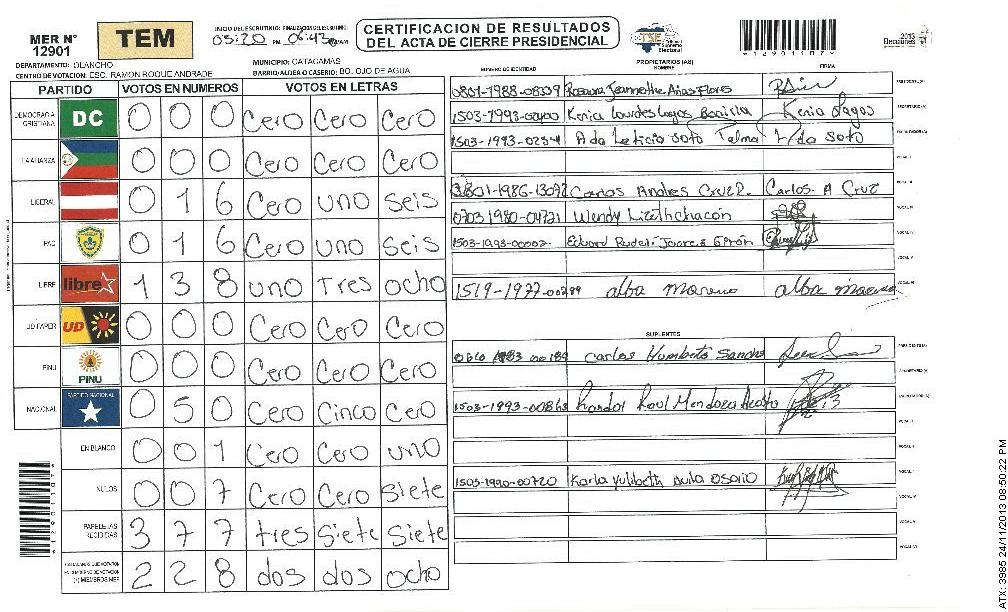 MER N° 12901
TEM
INICIO DEL ESCRUTINIO: FINALIZACION DEL ESCRUTINIO:
05:20 PM 06:43
CERTIFICACION DE RESULTADOS
DEL ACTA DE CIERRE PRESIDENCIAL
TSE
Tribunal Supremo Electoral
1290110?
2013
Elecciones
DEPARTAMENTO: OLANCHO
MUNICIPIO: CATACAMAS
CENTRO DE VOTACION: ESC. RAMON ROQUE ANDRADE
BARRIO/ALDEA O CASERIO: BO. OJO DE AGUA
PARTIDO VOTOS EN NUMEROS VOTOS EN LETRAS
DEMOCRACIA CRISTIANA DC 0 0 0 Cero Cero Cero
LA ALIANZA 0 0 0 Cero Cero Cero
LIBERAL 0 1 6 Cero uno seis
PAC 0 1 6 Cero uno seis
LIBRE libre 1 3 8 uno Tres ocho
UD FAPER UD 0 0 0 Cero Cero Cero
PINU PINU 0 0 0 Cero Cero Cero
NACIONAL PARTIDO NACIONAL 0 5 0 Cero Cinco Cero
EN BLANCO 0 0 1 Cero Cero uno
NULOS 0 0 7 Cero Cero Siete
PAPELETAS RECIBIDAS 3 7 7 tres Siete Siete
2 2 8 dos dos ocho
PROPIETARIOS (AS)
NUMERO DE IDENTIDAD NOMBRE FIRMA
0801-1988-08339 Rosaura Jeannethe Arias Flores
1503-1993-02400 Kenia Lourdes Lagos Bonilla Kenia Lagos
1503-1993-02341 Ada Leticia Soto Telma Soto
0801-1986-13092 Carlos Andres Cruz R. Carlos A Cruz
0703 1980-04721 Wendy Lizeth chacón
1503-1993-00002 Edward
1519-1977-00289 alba moreno alba moreno
SUPLENTES
1983 00189 Carlos Humberto Sancho
1503-1993-00863 Randol Raul Mendoza Acosta
1503-1990-00720 Karla Yulibeth Avila Osorio
ATX: 3985 24/11/2013 08:50:22 PM